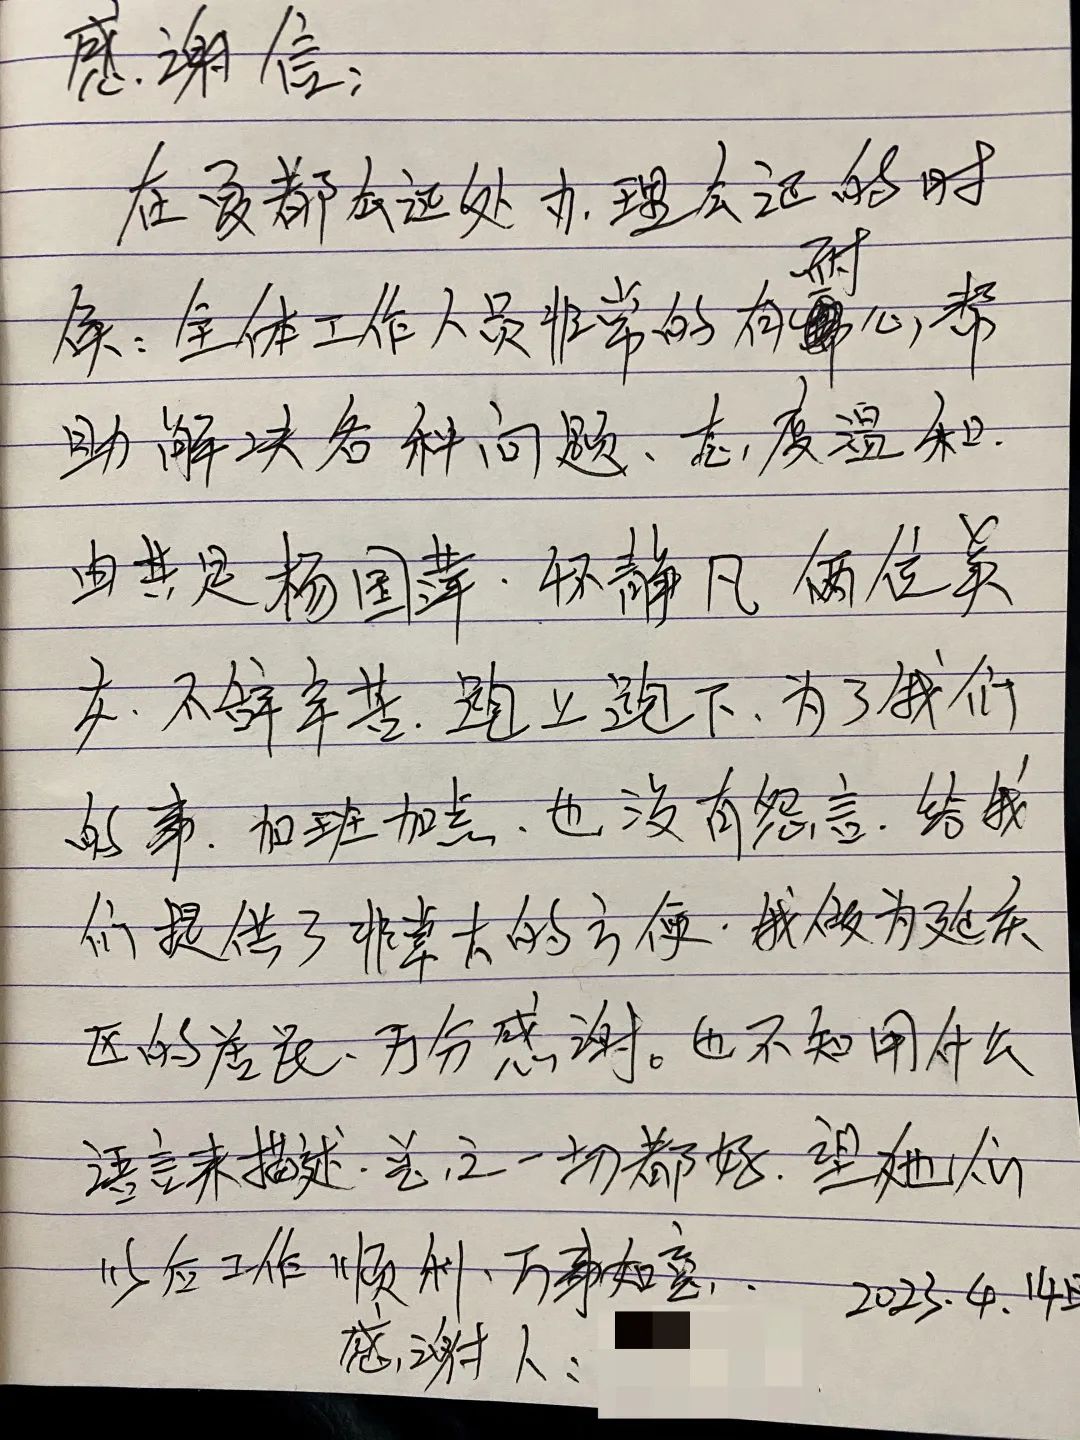 感谢信:
在夏都公证处办理公证的时
候:全体工作人员非常的有耐心,帮
助解决各种问题、态度温和.
由其是杨国萍.怀静凡俩位美
女.不辞辛苦.跑上跑下、为了我们
的事.加班加点、也没有怨言.给我
们提供了非常大的方便.我做为延庆
区的居民、万分感谢。也不知用什么
语言来描述.总之一切都好.望她们
以后工作顺利、万事如意.
2023.4.14日
感谢人: